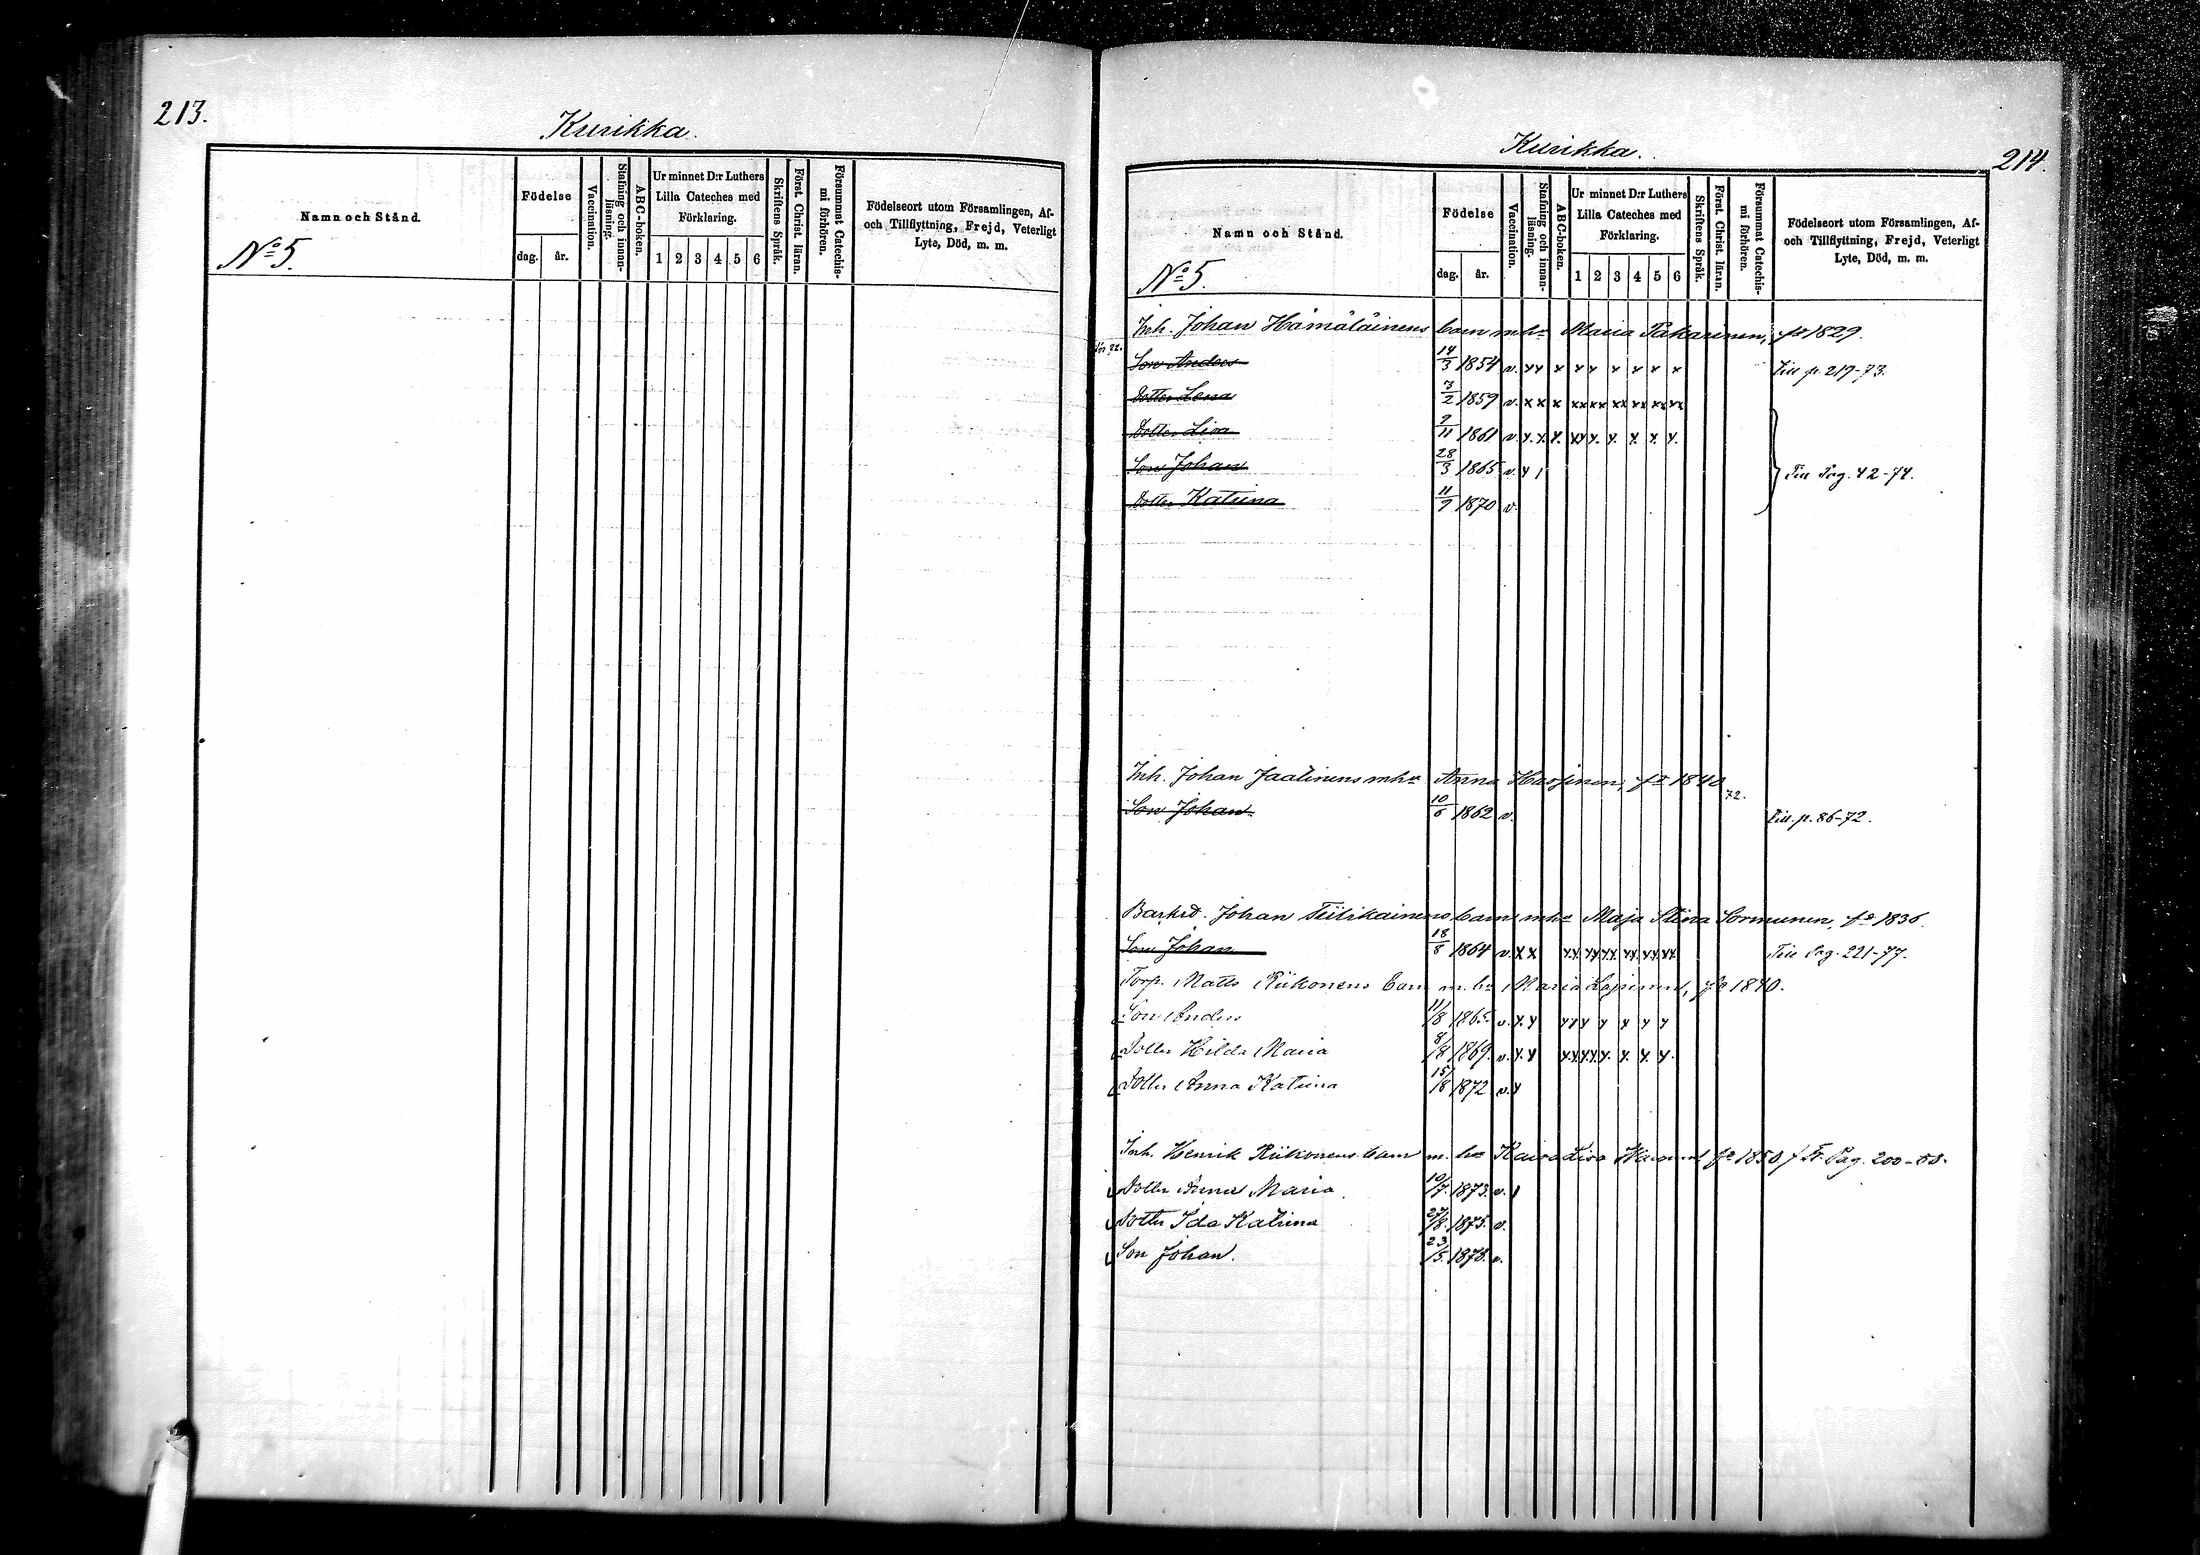 213.
Kurikka.
Namn och Stånd.
No 5.
Födelse
dag. år.
Vaccination.
Stafning och innanläsning.
ABC-boken.
Ur minnet D:r Luthers
Lilla Cateches med
Förklaring.
1 2 3 4 5 6
Skriftens Språk.
Först. Christ. läran.
Försummat Catechismi förhören.
Födelseort utom Församlingen, Af-
och Tillflyttning, Frejd, Veterligt
Lyte, Död, m. m.
Kurikka.
214.
Namn och Stånd.
No 5.
Födelse
dag. år.
Vaccination.
Stafning och innanläsning.
ABC-boken.
Ur minnet D:r Luthers
Lilla Cateches med
Förklaring.
1 2 3 4 5 6
Skriftens Språk.
Först. Christ. läran.
Försummat Catechismi förhören.
Födelseort utom Församlingen, Af-
och Tillflyttning, Frejd, Veterligt
Lyte, Död, m. m.
Inh. Johan Hämäläinens barn m. h. Maria Pakarinen, f. 1829.
Son Anders 14/3 1854 v. x x x x x x x x x Till p. 217-73.
Dotter Lena 7/2 1859 v. x x x xx xx xx xx xx xx
Dotter Lisa 9/11 1861 v. x. x. x. xx x. x. x. x. x.
Son Johan 28/3 1865 v. x 1 Till Pag. 42-74.
Dotter Katrina 11/9 1870 v.
Inh. Johan Jaatinens m. h. Anna Hassinen, f. 1840
72.
Son Johan 10/6 1862 v. Till p. 86-72.
Johan Tiilikainens barn m. h. Maja Stina Sormunen, f. 1836.
Son Johan 18/8 1864 v. x x xx xx xx xx xx xx Till Pag. 221-77.
Torp. Matts Riikonens barn m. h. Maria f. 1840.
Son Anders 11/8 1865. v. x. x x x x x x x x
Dotter Hilda Maria 8/8 1869. v. x. x xx xx x. x. x. x.
Dotter Anna Katrina 15/8 1872 v. x
Inh. Henrik Riikonens barn m. h. Kaisa Lisa f. 1850 / Fr. Pag. 200-
Dotter Anna Maria 10/7. 1873. v. 1
Dotter Ida Katrina 27/8. 1875. v.
Son Johan. 23/5. 1878. v.